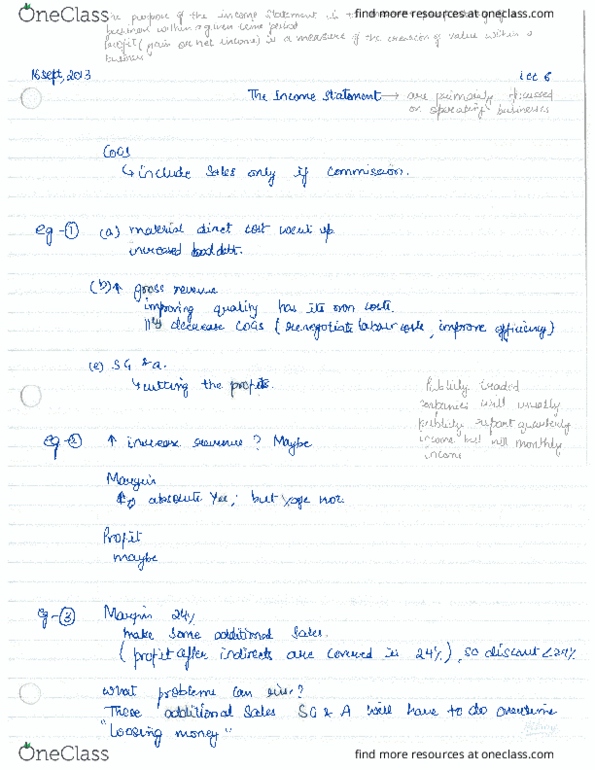 OneClass
find more resources at oneclass.com
the purpose of the income statement is
business within a given time period
profit (gain or net income) is a measure of the creation of value within a
business
16 Sept, 2013
lec 6
The Income Statement → are primarily focused
on operating businesses
COGS
↳ include Sales only if commission.
eg-① (a) material direct cost went up
increased bad debt.
(b) ↑ gross revenue
improving quality has its own costs.
decrease COGS (renegotiate labour costs, improve efficiency)
(c) SG &a.
↳ cutting the
Publicly traded
companies will usually
publicly report quarterly
income but not monthly
income
eg-② ↑ increase revenue? Maybe
Margin
absolute Yes; but %age not.
Profit
maybe
eg-③ Margin 24%
make some additional sales.
(profit after indirects are covered is 24%), so discount <24%
What problems can rise?
These additional sales SG & A will have to do overtime
"loosing money"
OneClass
find more resources at oneclass.com